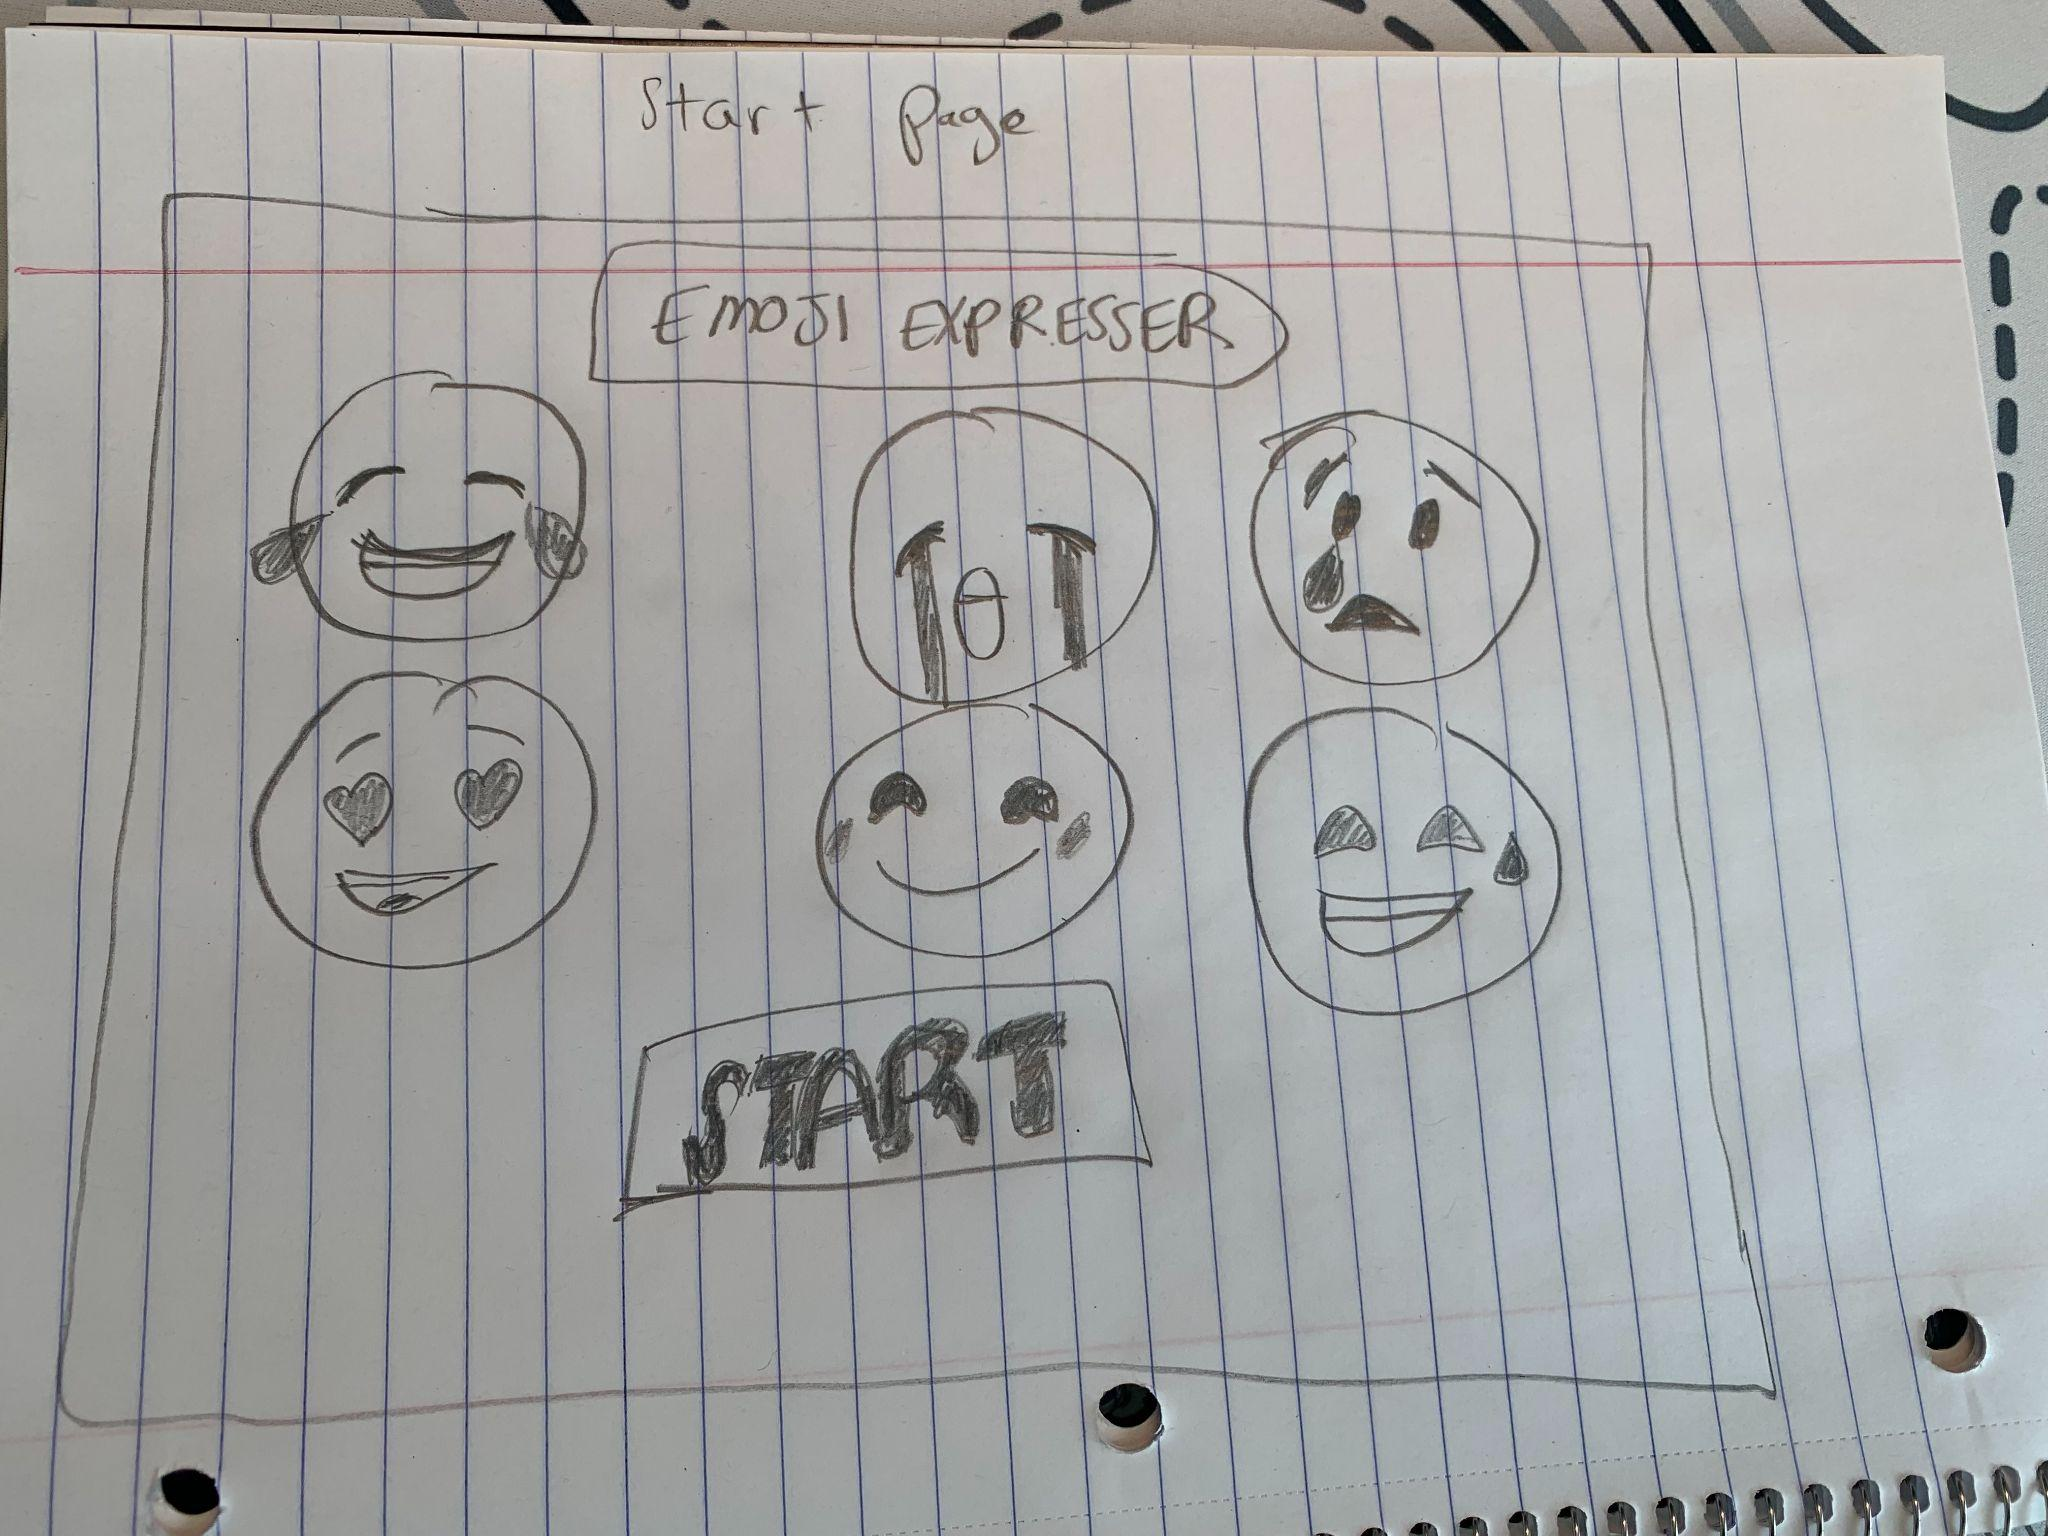 Start Page
EMOJI EXPRESSER
START